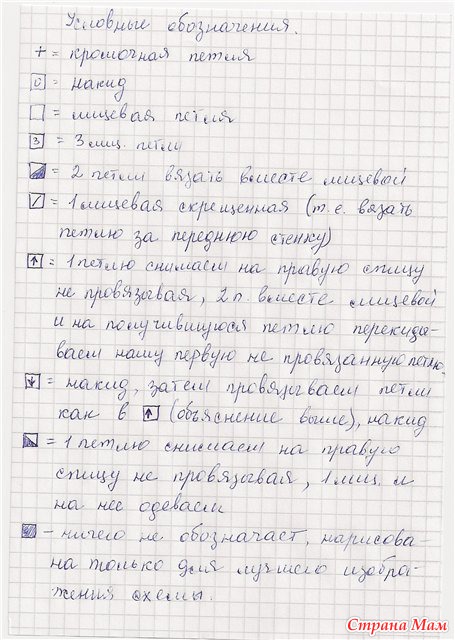 Условные обозначения.
+ = кромочная петля
U = накид
= лицевая петля
3 = 3 лиц. петли
= 2 петли вязать вместе лицевый
/ = 1 лицевая скрещенная (т.е. вязать
петлю за переднюю стенку)
↑ = 1 петлю снимаем на правую спицу
не провязывая, 2 п. вместе лицевой
и на получившуюся петлю перекиды-
ваем нашу первую не провязанную петлю.
↓ = накид, затем провязываем петли
как в ↑ (объяснение выше), накид
= 1 петлю снимаем на правую
спицу не провязывая, 1 лиц. и
на нее одеваем
- ничего не обозначает, нарисова-
на только для лучшего изобра-
жения схемы.
Страна Мам